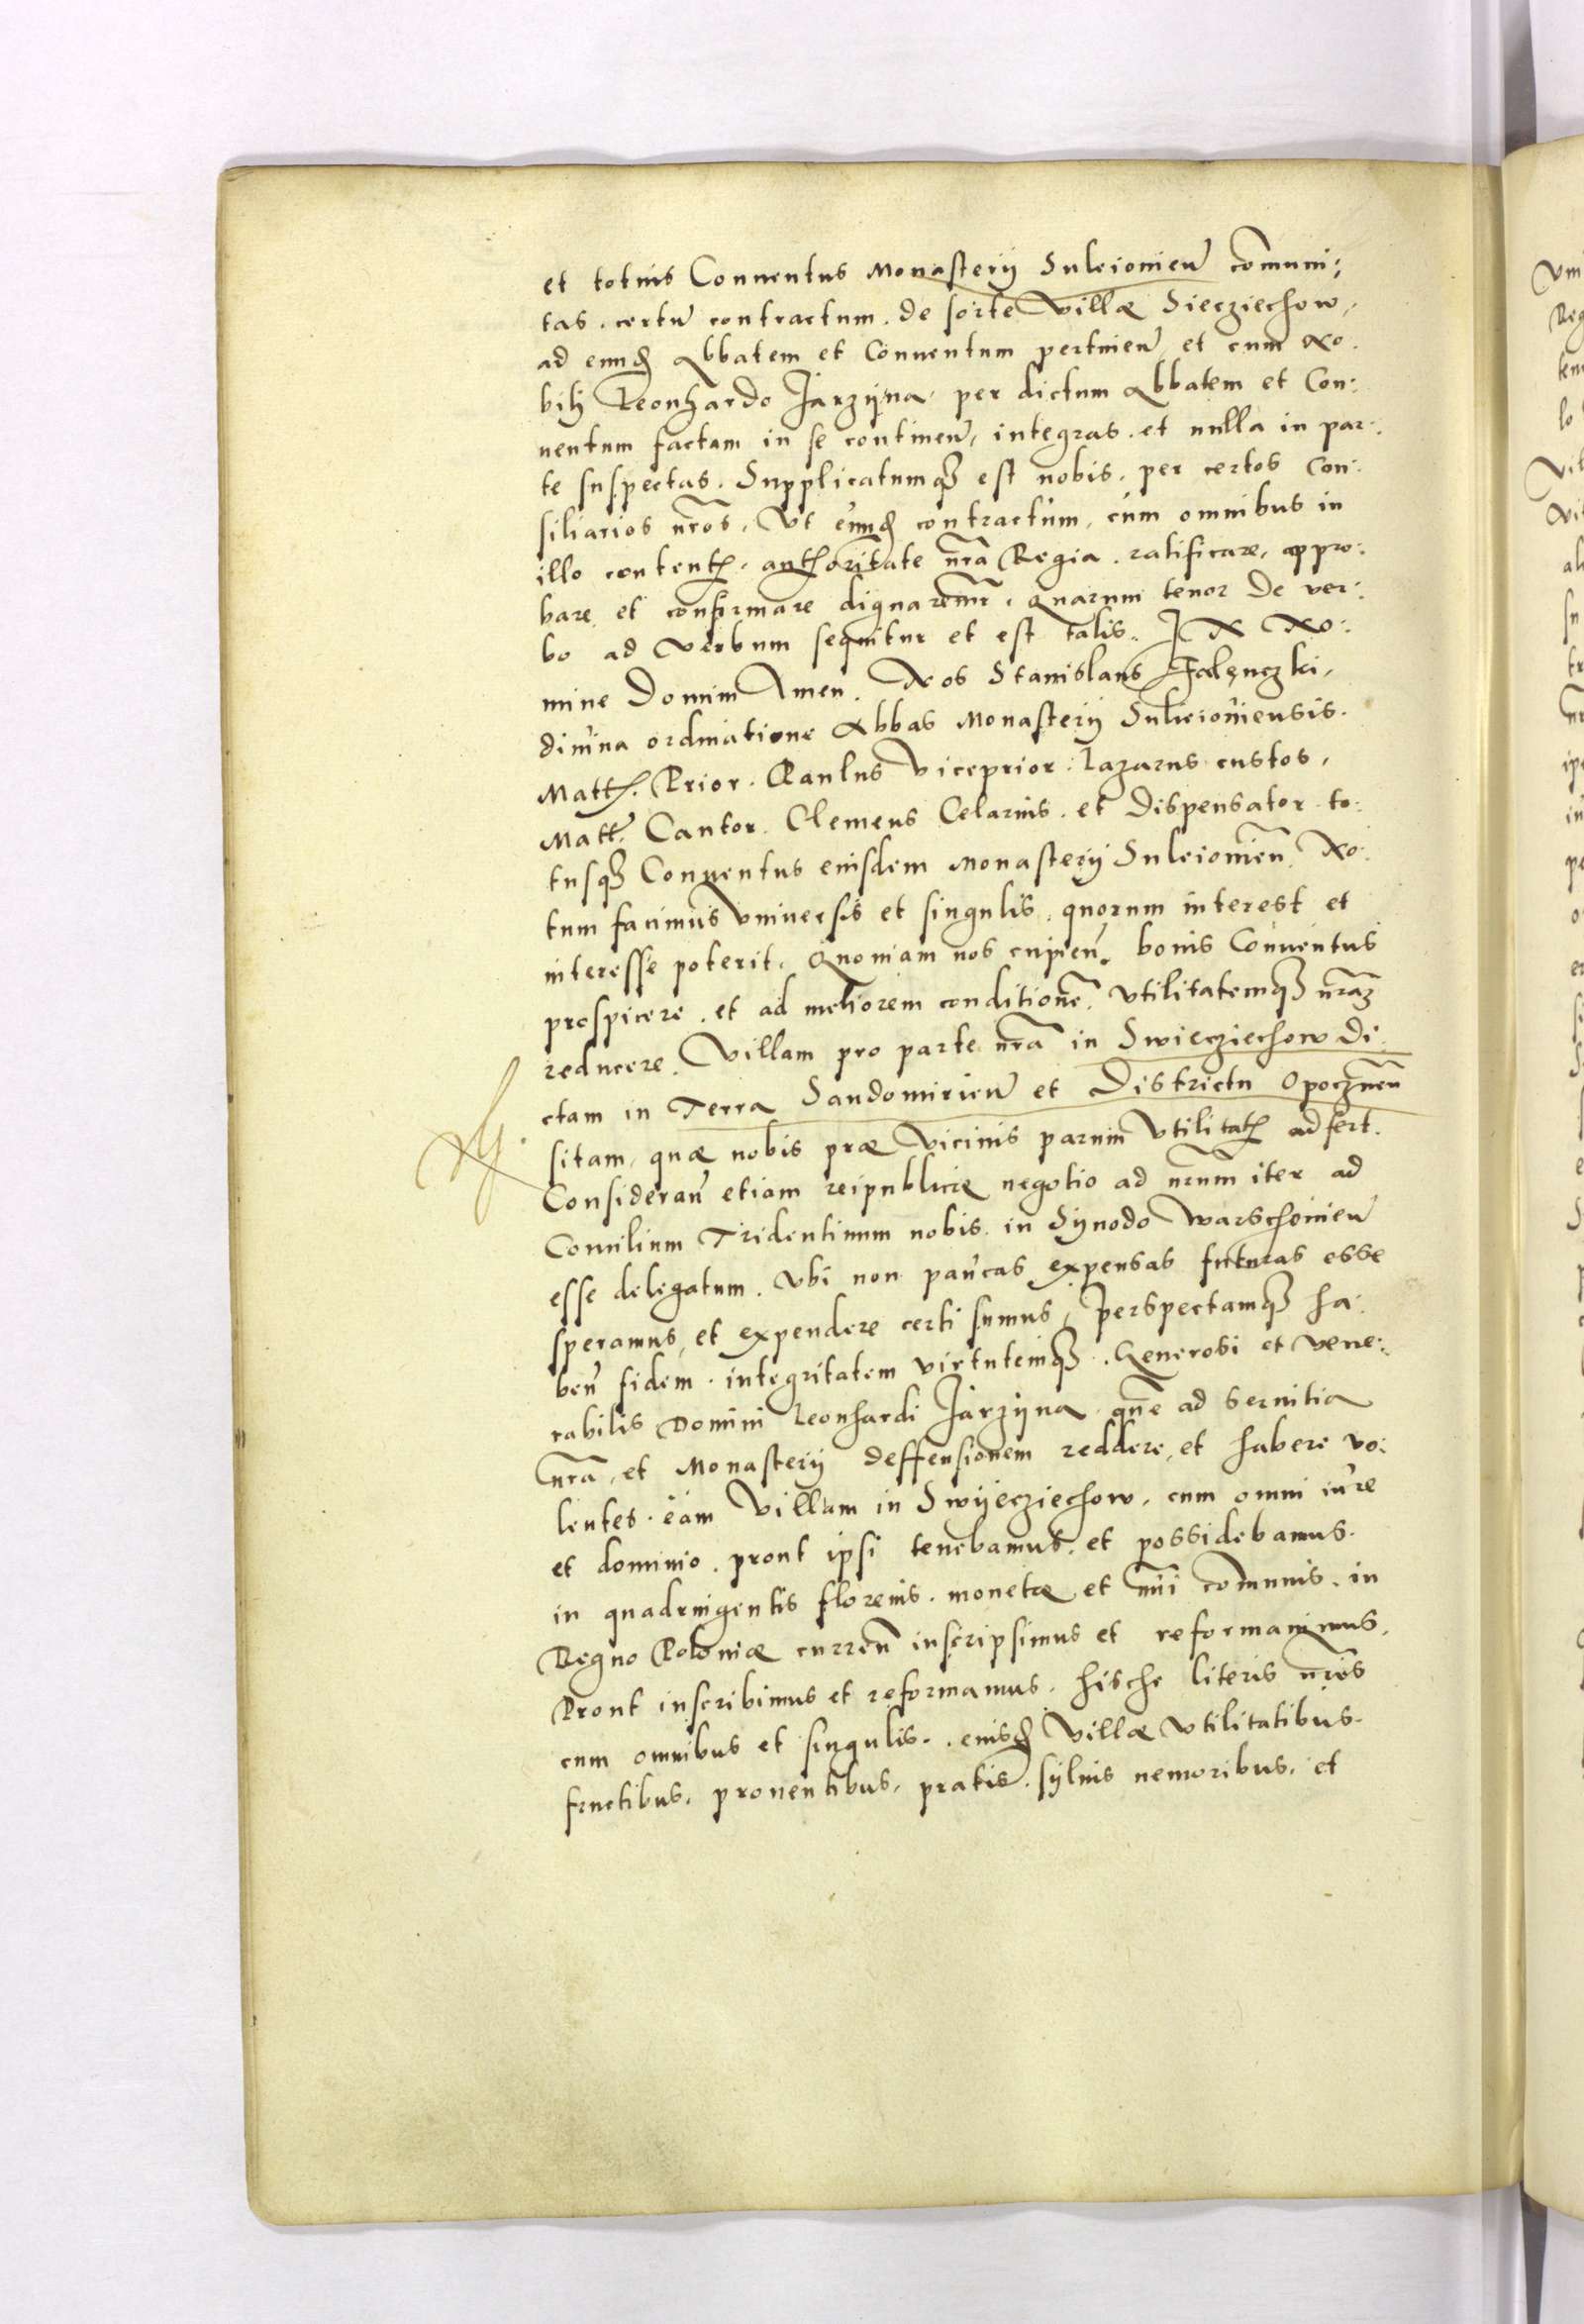 et totius Conventus Monasterij Suleiovien̄ com̄uni:
tas. certū contractum. de sorte Villæ Siecziechow,
ad eund Abbatem et Conventum pertinen̄ et cum No.
bilj Leonhardo Jarzÿna per dictum Abbatem et Con:
uentum factam in se continen̄, integras. et nulla in par:
te suspectas. Supplicatumq3 est nobis. per certos Con:
siliarios nr̄os. Vt eund contractum, cum omnibus in
illo content. authoritate nr̄a Regia. ratificare, appro:
bare et confirmare dignaremr. Quarum tenor de ver:
bo ad verbum sequitur et est talis. IN No:
mine Domini Amen. Nos Stanislaus Falęnczki,
diuina ordinatione Abbas Monasterij Suleiouiensis.
Matth. Prior. Paulus viceprior. Lazarus custos,
Matth. Cantor. Clemens Celarius. et Dispensator to:
tusq3 Conuentus eiusdem Monasterij Suleiouien̄ No:
tum facimus vniuersis et singulis, quorum interest et
interesse poterit. Quoniam nos cupien̄. bonis Conuentus
prospicere. et ad meliorem conditionē. Vtilitatemq3 nr̄am
reducere. Villam pro parte nr̄a in Swiecziechow di:
ctam in Terra Sandomirien̄ et Districtu Opocznen̄
sitam, quæ nobis præ vicinis parum Vtilitat adfert.
Consideran̄ etiam reipublicæ negotio ad nr̄um iter ad
Concilium Tridentinum nobis in Sÿnodo Warschouien̄
esse delegatum. Vbi non paucas expensas futuras esse
speramus, et expendere certi sumus, Perspectamq3 ha:
ben̄ fidem. integritatem virtutemq3. Generosi et vene:
rabilis Domini Leonhardi Jarzÿna. quē ad seruitia
nr̄a, et Monasterij deffensionem reddere, et habere vo:
lentes. eam Villam in Swÿecziechow, cum omni iure
et dominio. prout ipsi tenebamus. et possidebamus.
in quadringentis florenis. monetæ et nūi com̄unis. in
Regno Poloniæ curren̄ inscripsimus et reformauimus,
Prout inscribimus et reformamus. hische literis nr̄is
cum omnibus et singulis. eiusd Villæ Vtilitatibus.
fructibus, prouentibus, pratis. sÿluis nemoribus. et